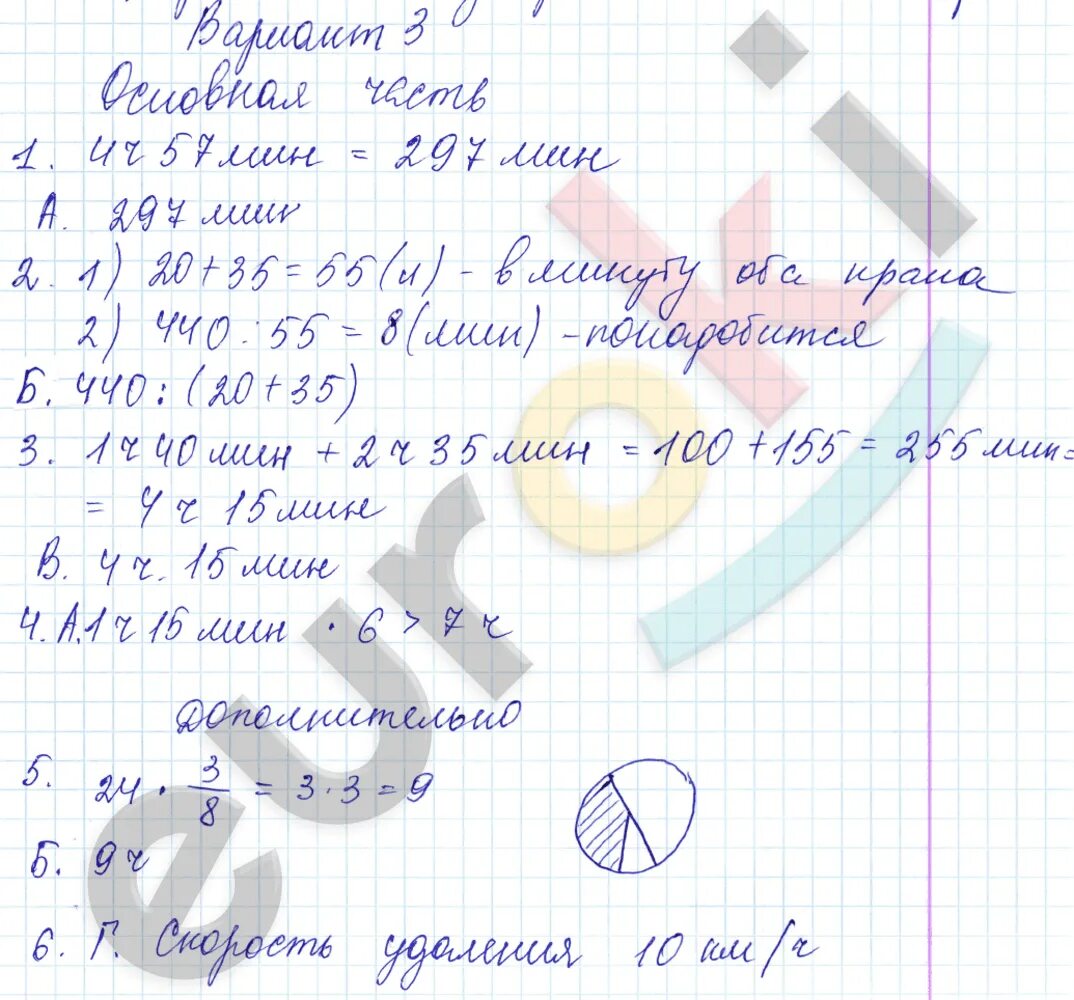 Вариант 3
Основная часть
1. 4ч 57мин = 297 мин
А. 297 мин
2. 1) 20+35=55(л) - в минуту оба крана
2) 440 : 55 = 8(мин) - понадобится
Б. 440 : (20+35)
3. 1ч 40 мин + 2 ч 35 мин = 100 + 155 = 255 мин =
= 4 ч 15 мин
В. 4 ч. 15 мин
4. А. 1 ч 15 мин · 6 > 7 ч
Дополнительно
5. 24 · 3/8 = 3 · 3 = 9
Б. 9 ч
6. Г. Скорость удаления 10 км/ч
euroki